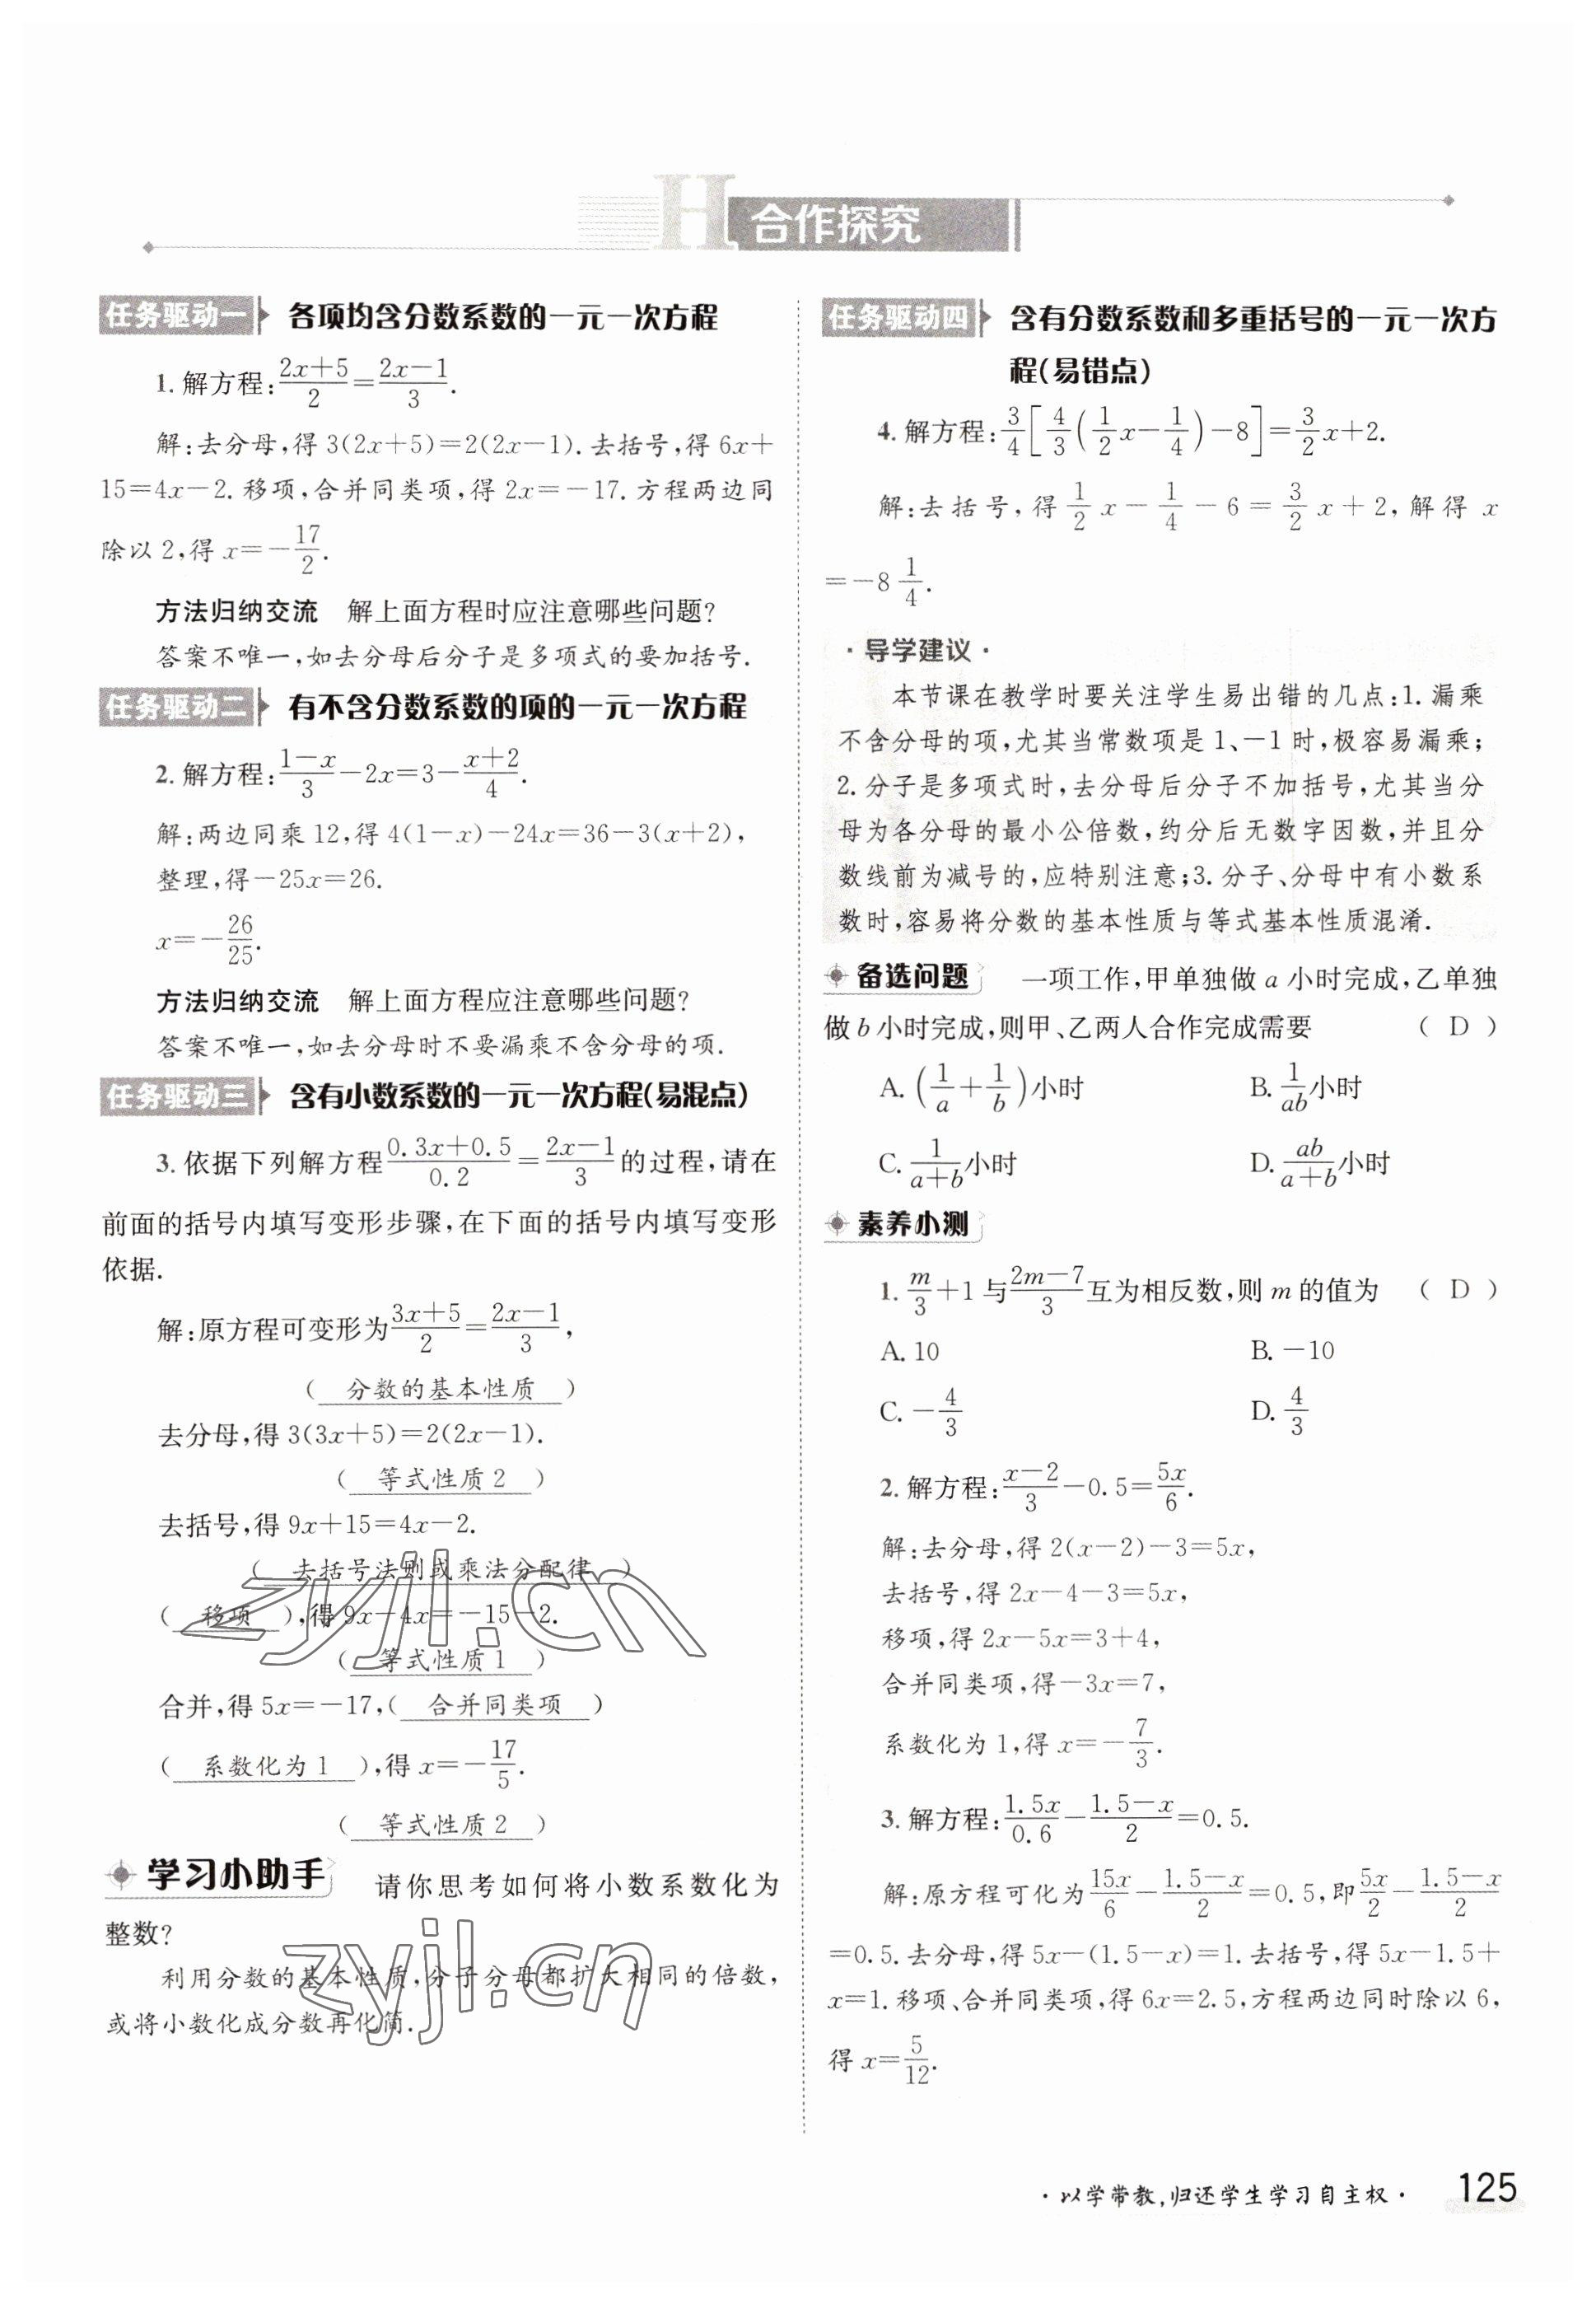 H 合作探究
任务驱动一 各项均含分数系数的一元一次方程
1. 解方程:$\frac{2x+5}{2}=\frac{2x-1}{3}$.
解:去分母,得 3(2x+5)=2(2x-1). 去括号,得 6x+
15=4x-2. 移项,合并同类项,得 2x=-17. 方程两边同
除以 2,得 $x=-\frac{17}{2}$.
方法归纳交流 解上面方程时应注意哪些问题?
答案不唯一,如去分母后分子是多项式的要加括号.
任务驱动二 有不含分数系数的项的一元一次方程
2. 解方程:$\frac{1-x}{3}-2x=3-\frac{x+2}{4}$.
解:两边同乘 12,得 4(1-x)-24x=36-3(x+2),
整理,得-25x=26.
$x=-\frac{26}{25}$.
方法归纳交流 解上面方程应注意哪些问题?
答案不唯一,如去分母时不要漏乘不含分母的项.
任务驱动三 含有小数系数的一元一次方程(易混点)
3. 依据下列解方程$\frac{0.3x+0.5}{0.2}=\frac{2x-1}{3}$的过程,请在
前面的括号内填写变形步骤,在下面的括号内填写变形
依据.
解:原方程可变形为$\frac{3x+5}{2}=\frac{2x-1}{3}$,
( 分数的基本性质 )
去分母,得 3(3x+5)=2(2x-1).
( 等式性质 2 )
去括号,得 9x+15=4x-2.
( 去括号法则或乘法分配律 )
( 移项 ),得 9x-4x=-15-2.
( 等式性质 1 )
合并,得 5x=-17,( 合并同类项 )
( 系数化为 1 ),得 $x=-\frac{17}{5}$.
( 等式性质 2 )
学习小助手 请你思考如何将小数系数化为
整数?
利用分数的基本性质,分子分母都扩大相同的倍数,
或将小数化成分数再化简.
zyjl.cn
zyjl.cn
任务驱动四 含有分数系数和多重括号的一元一次方
程(易错点)
4. 解方程:$\frac{3}{4}\left[\frac{4}{3}\left(\frac{1}{2}x-\frac{1}{4}\right)-8\right]=\frac{3}{2}x+2$.
解:去括号,得 $\frac{1}{2}x-\frac{1}{4}-6=\frac{3}{2}x+2$,解得 x
$=-8\frac{1}{4}$.
·导学建议·
本节课在教学时要关注学生易出错的几点:1. 漏乘
不含分母的项,尤其当常数项是 1、-1 时,极容易漏乘;
2. 分子是多项式时,去分母后分子不加括号,尤其当分
母为各分母的最小公倍数,约分后无数字因数,并且分
数线前为减号的,应特别注意;3. 分子、分母中有小数系
数时,容易将分数的基本性质与等式基本性质混淆.
备选问题 一项工作,甲单独做 a 小时完成,乙单独
做 b 小时完成,则甲、乙两人合作完成需要 ( D )
A. $\left(\frac{1}{a}+\frac{1}{b}\right)$小时 B. $\frac{1}{ab}$小时
C. $\frac{1}{a+b}$小时 D. $\frac{ab}{a+b}$小时
素养小测
1. $\frac{m}{3}+1$与$\frac{2m-7}{3}$互为相反数,则 m 的值为 ( D )
A. 10 B. -10
C. $-\frac{4}{3}$ D. $\frac{4}{3}$
2. 解方程:$\frac{x-2}{3}-0.5=\frac{5x}{6}$.
解:去分母,得 2(x-2)-3=5x,
去括号,得 2x-4-3=5x,
移项,得 2x-5x=3+4,
合并同类项,得-3x=7,
系数化为 1,得 $x=-\frac{7}{3}$.
3. 解方程:$\frac{1.5x}{0.6}-\frac{1.5-x}{2}=0.5$.
解:原方程可化为$\frac{15x}{6}-\frac{1.5-x}{2}=0.5$,即$\frac{5x}{2}-\frac{1.5-x}{2}$
=0.5. 去分母,得 5x-(1.5-x)=1. 去括号,得 5x-1.5+
x=1. 移项、合并同类项,得 6x=2.5,方程两边同时除以 6,
得 $x=\frac{5}{12}$.
·以学带教,归还学生学习自主权· 125